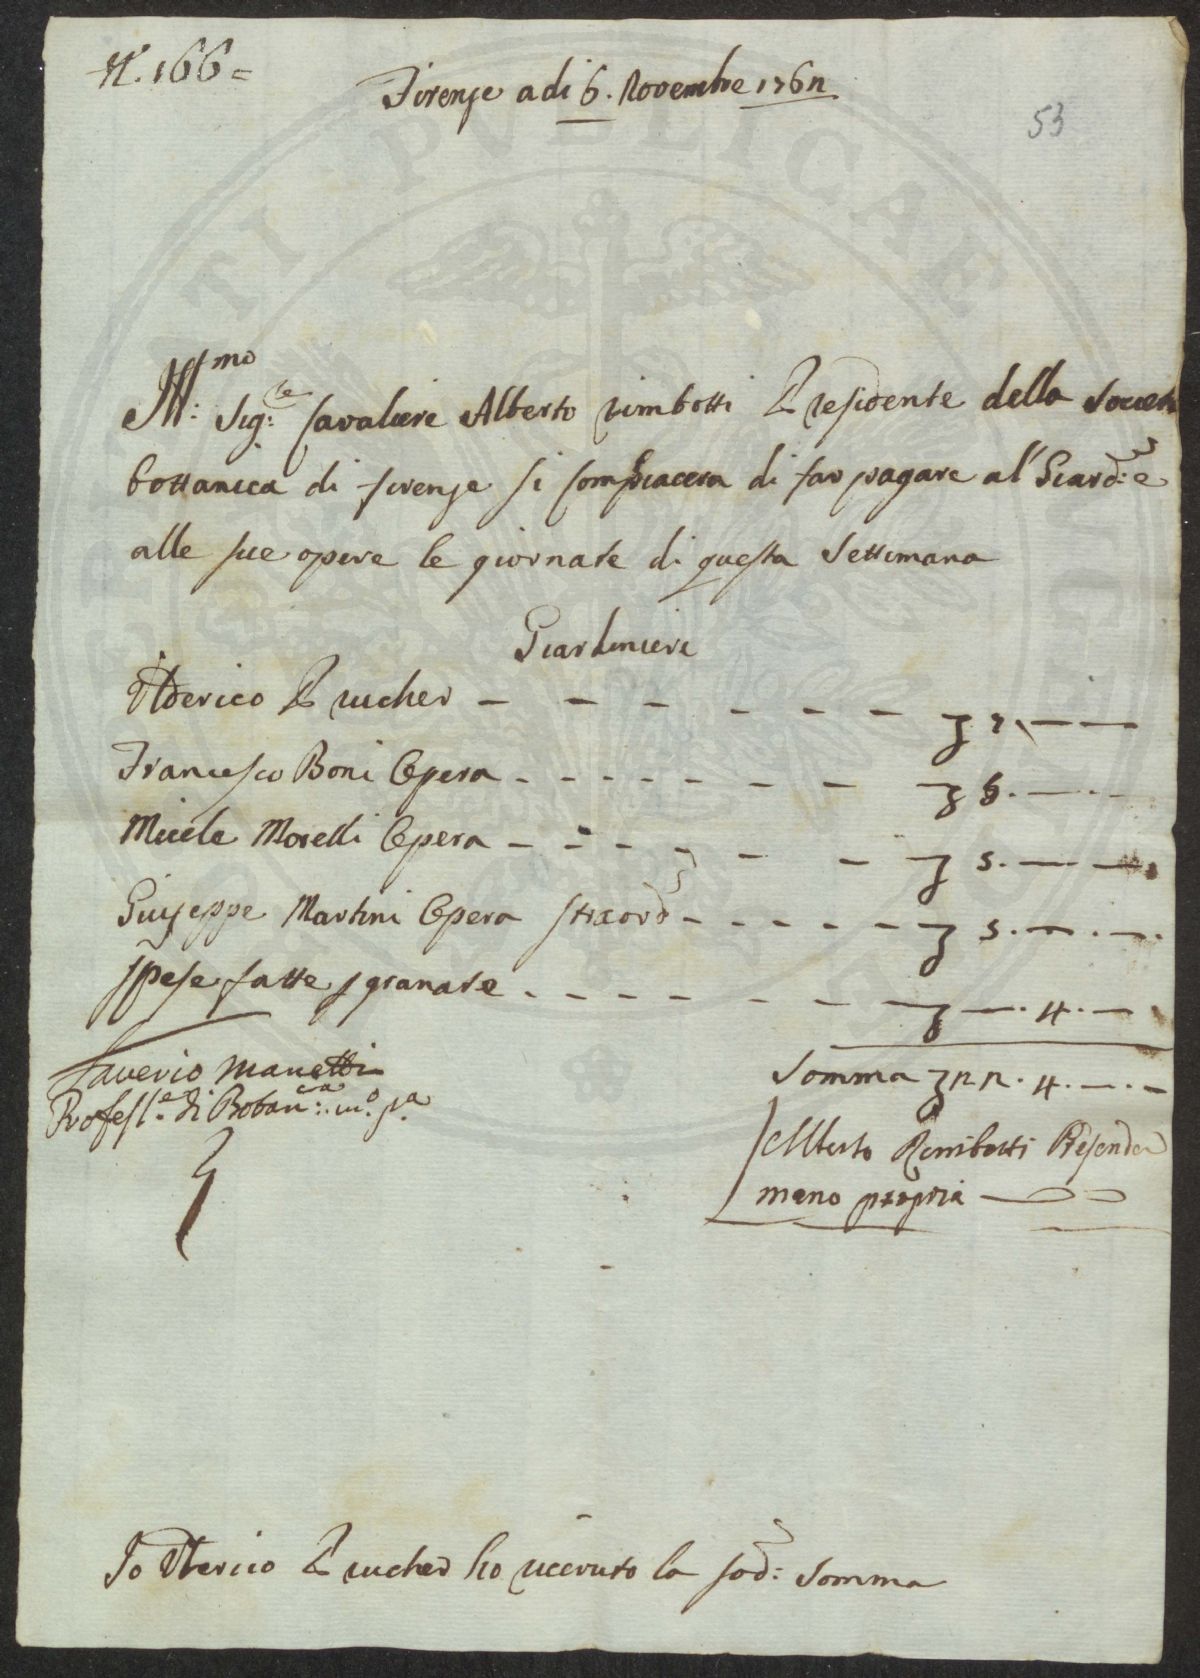 N. 166=
Firenze adi 6. Novembre 1762
53
Ill:mo Sig:re Cavaliere Alberto rimbotti Presidente della Societa
bottanica di firenze si Compiacera di far pagare al Giard:e e
alle sue opere le giornate di questa Settimana
Giardiniere
Ulderico Prucher - - - - - - £ 7. — —
Francesco Boni Opera - - - - - - - £ 5. — -
Micele Morelli Opera - - - - - - £ 5. — —
Giuseppe Martini Opera straord - - - - - £ 5. — . —
Spese fatte p granate - - - - - - £ — . 4. —
Somma £ 22. 4. — . —
Saverio Manetti
Profess.e di Botan:ca m.o p.a
Alberto Rimbotti Presidente
mano propria
Io Ulderico Prucher ho riceuto la sod: Somma
PVBLICAE